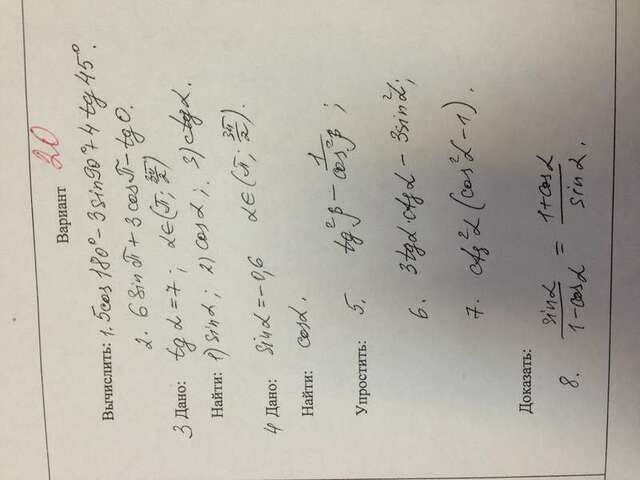 Вариант 20
Вычислить: 1. 5cos180° - 3sin90° + 4tg45°.
2. 6sinπ + 3cosπ - tg0.
3 Дано: tgα = 7; α∈(π; 3π/2)
Найти: 1) sinα; 2) cosα; 3) ctgα.
4 Дано: sinα = -0,6 α∈(π; 3π/2).
Найти: cosα.
Упростить: 5. tg²β - 1/cos²β;
6. 3tgα·ctgα - 3sin²α;
7. ctg²α (cos²α - 1).
Доказать:
8. sinα/(1-cosα) = (1+cosα)/sinα.